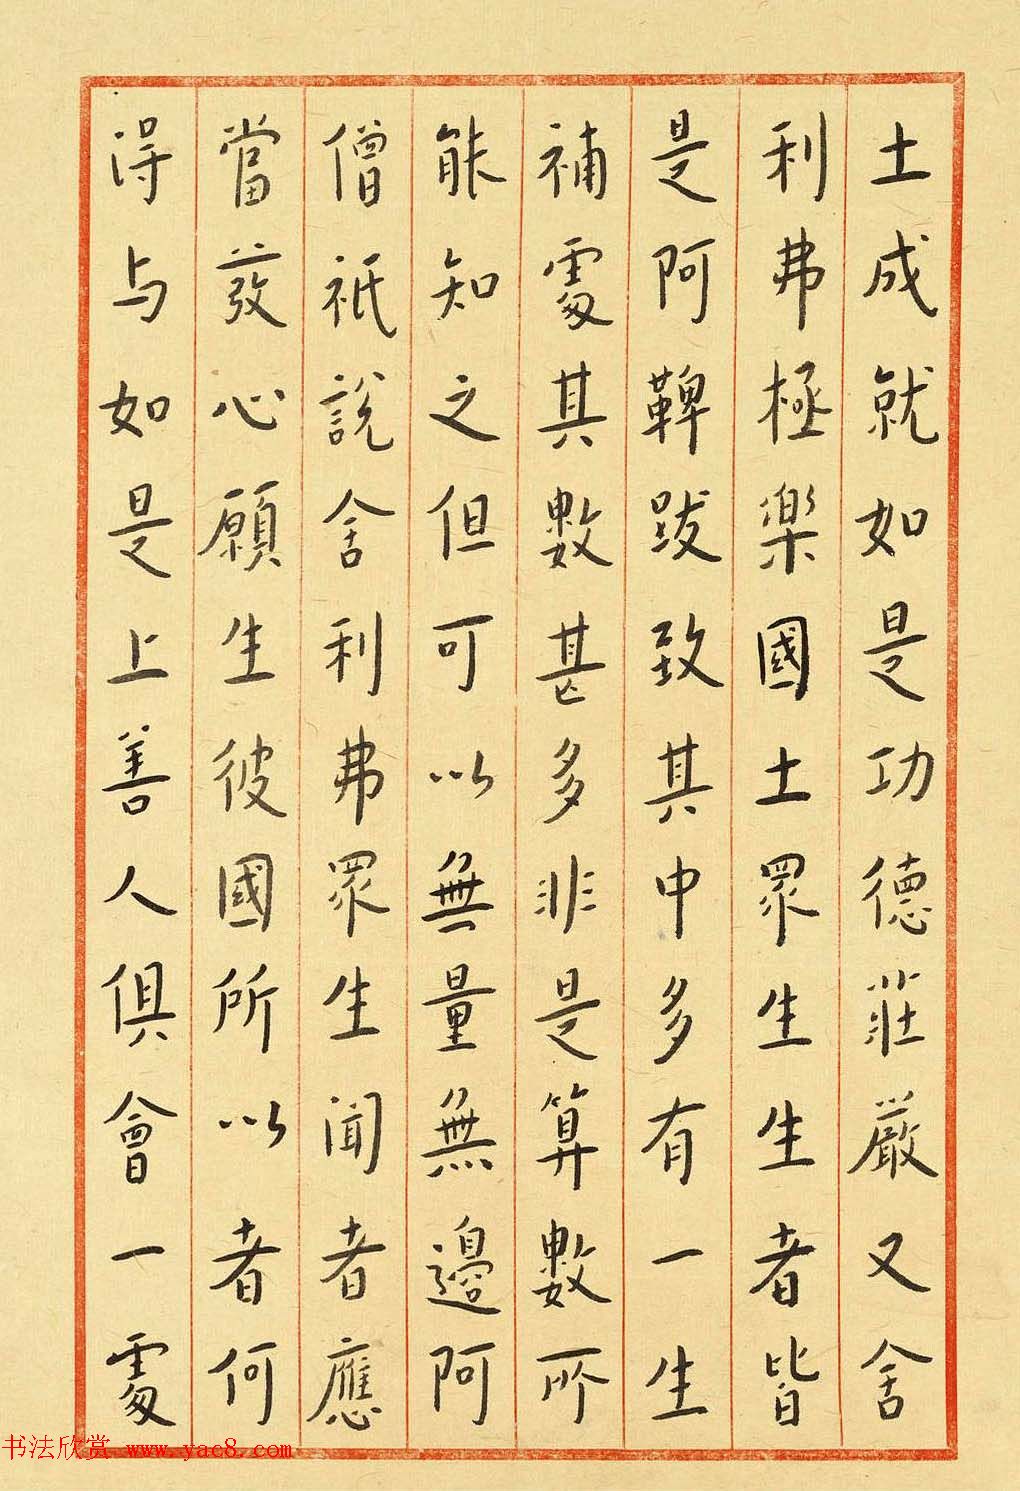 土成就如是功德莊嚴又舍
利弗極樂國土眾生生者皆
是阿鞞跋致其中多有一生
補處其數甚多非是算數所
能知之但可以無量無邊阿
僧祇說舍利弗眾生聞者應
當發心願生彼國所以者何
得与如是上善人俱會一處
书法欣赏 www.yac8.com